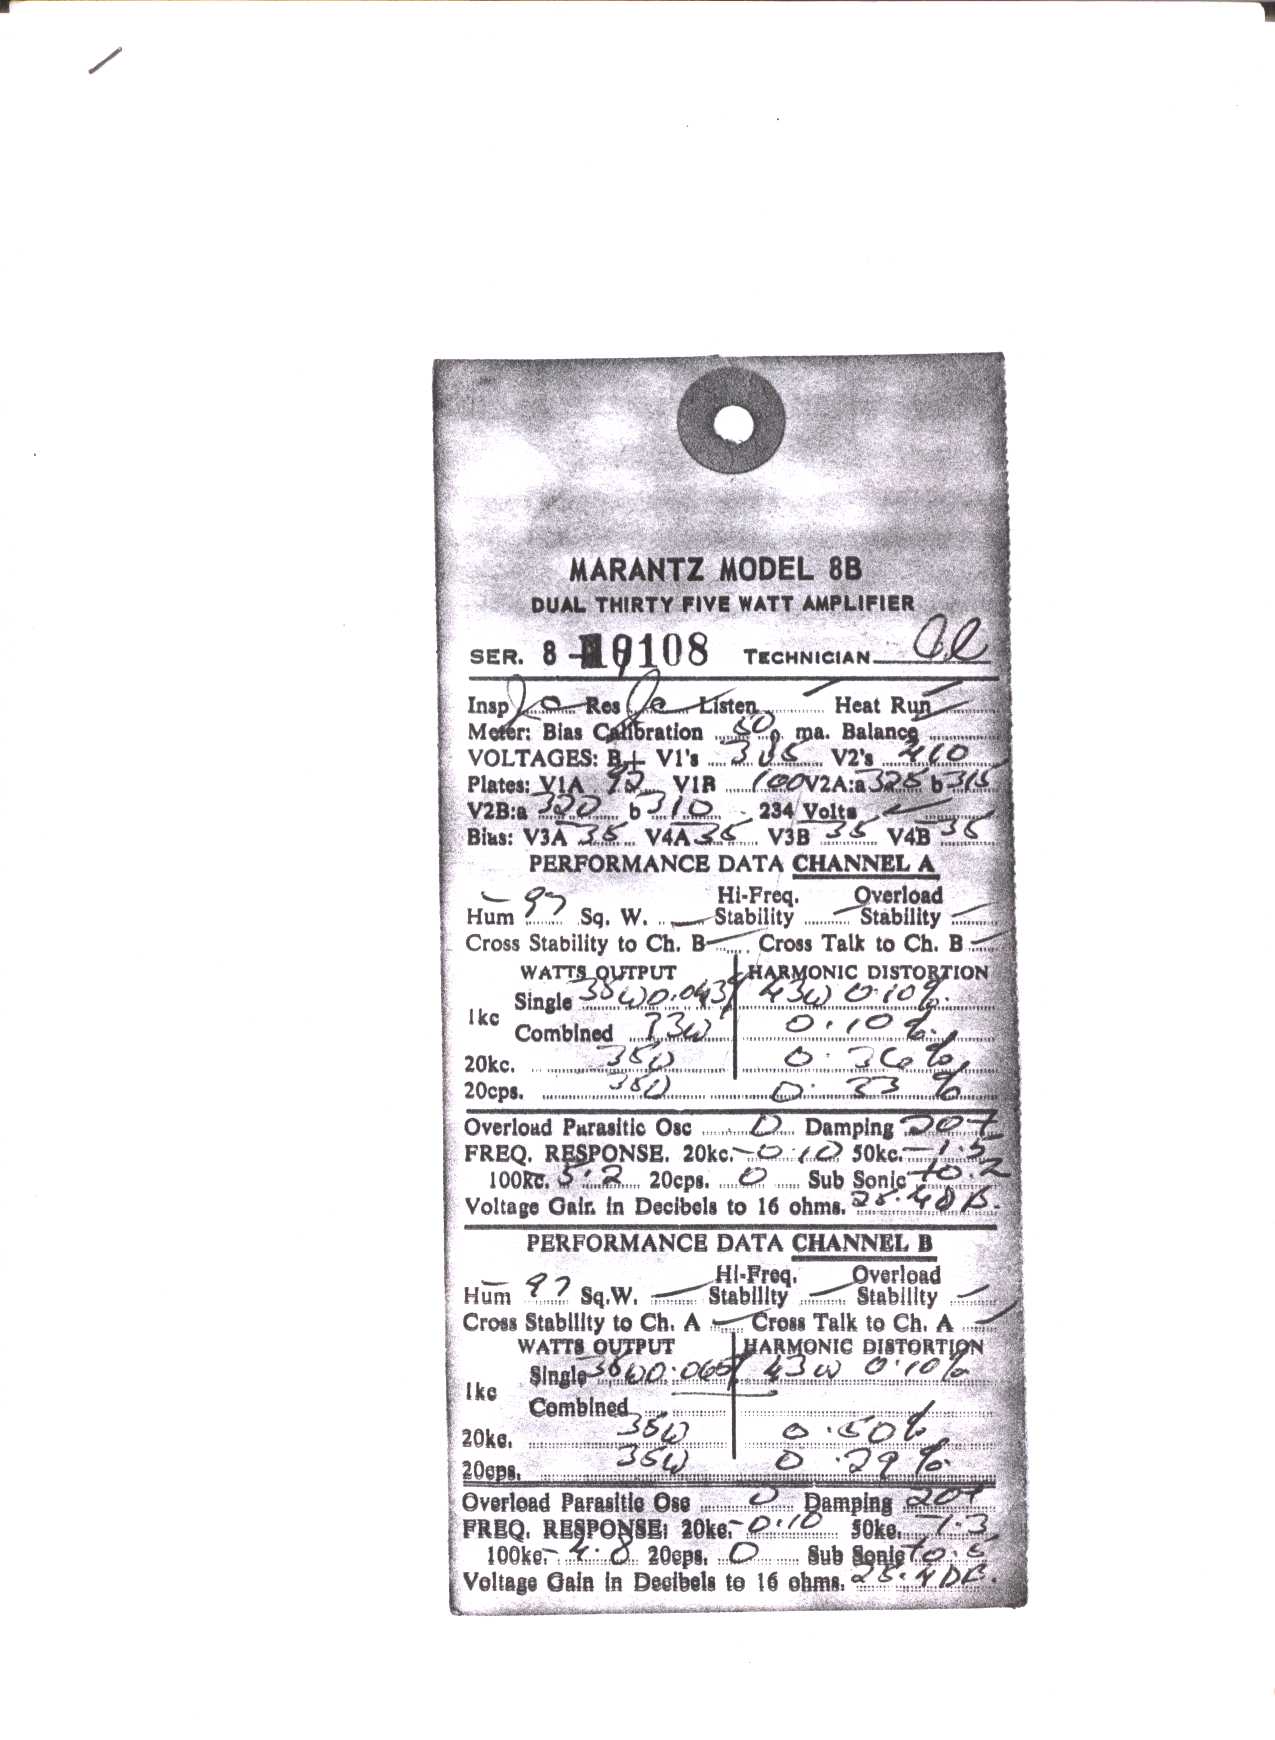 MARANTZ MODEL 8B
DUAL THIRTY FIVE WATT AMPLIFIER
SER. 8 108 TECHNICIAN
Insp Res Listen Heat Run
Meter: Bias Calibration 50 ma. Balance
VOLTAGES: B+ V1's V2's 410
Plates: V1A 92 V1B 100 V2A:a 325 b 315
V2B:a 320 b 310 234 Volts ✓
Bias: V3A 35 V4A 35 V3B 35 V4B 35
PERFORMANCE DATA CHANNEL A
Hi-Freq. Overload
Hum - 97 Sq. W. Stability Stability
Cross Stability to Ch. B Cross Talk to Ch. B
WATTS OUTPUT HARMONIC DISTORTION
Single 43W 0.10%
1kc
Combined 73W 0.10%
20kc. 35W 0.36%
20cps. 35W 0.33%
Overload Parasitic Osc 0 Damping 20+
FREQ. RESPONSE. 20kc. -0.10 50kc. -1.5
100kc. 5.2 20cps. 0 Sub Sonic +0.2
Voltage Gain in Decibels to 16 ohms. 25.4DB.
PERFORMANCE DATA CHANNEL B
Hi-Freq. Overload
Hum - 97 Sq.W. Stability Stability
Cross Stability to Ch. A Cross Talk to Ch. A
WATTS OUTPUT HARMONIC DISTORTION
Single 43W 0.10%
1kc
Combined
20kc. 35W 0.50%
20cps. 35W 0.29%
Overload Parasitic Osc 0 Damping 20+
FREQ. RESPONSE: 20kc. -0.10 50kc. -1.3
100kc. -4.8 20cps. 0 Sub Sonic +0.5
Voltage Gain in Decibels to 16 ohms. 25.4DB.